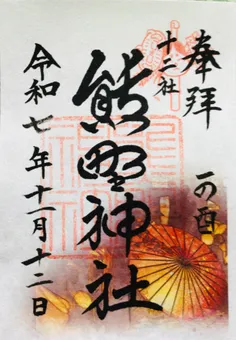 奉拝
一の酉
十二社
熊野神社
令和七年十一月十二日